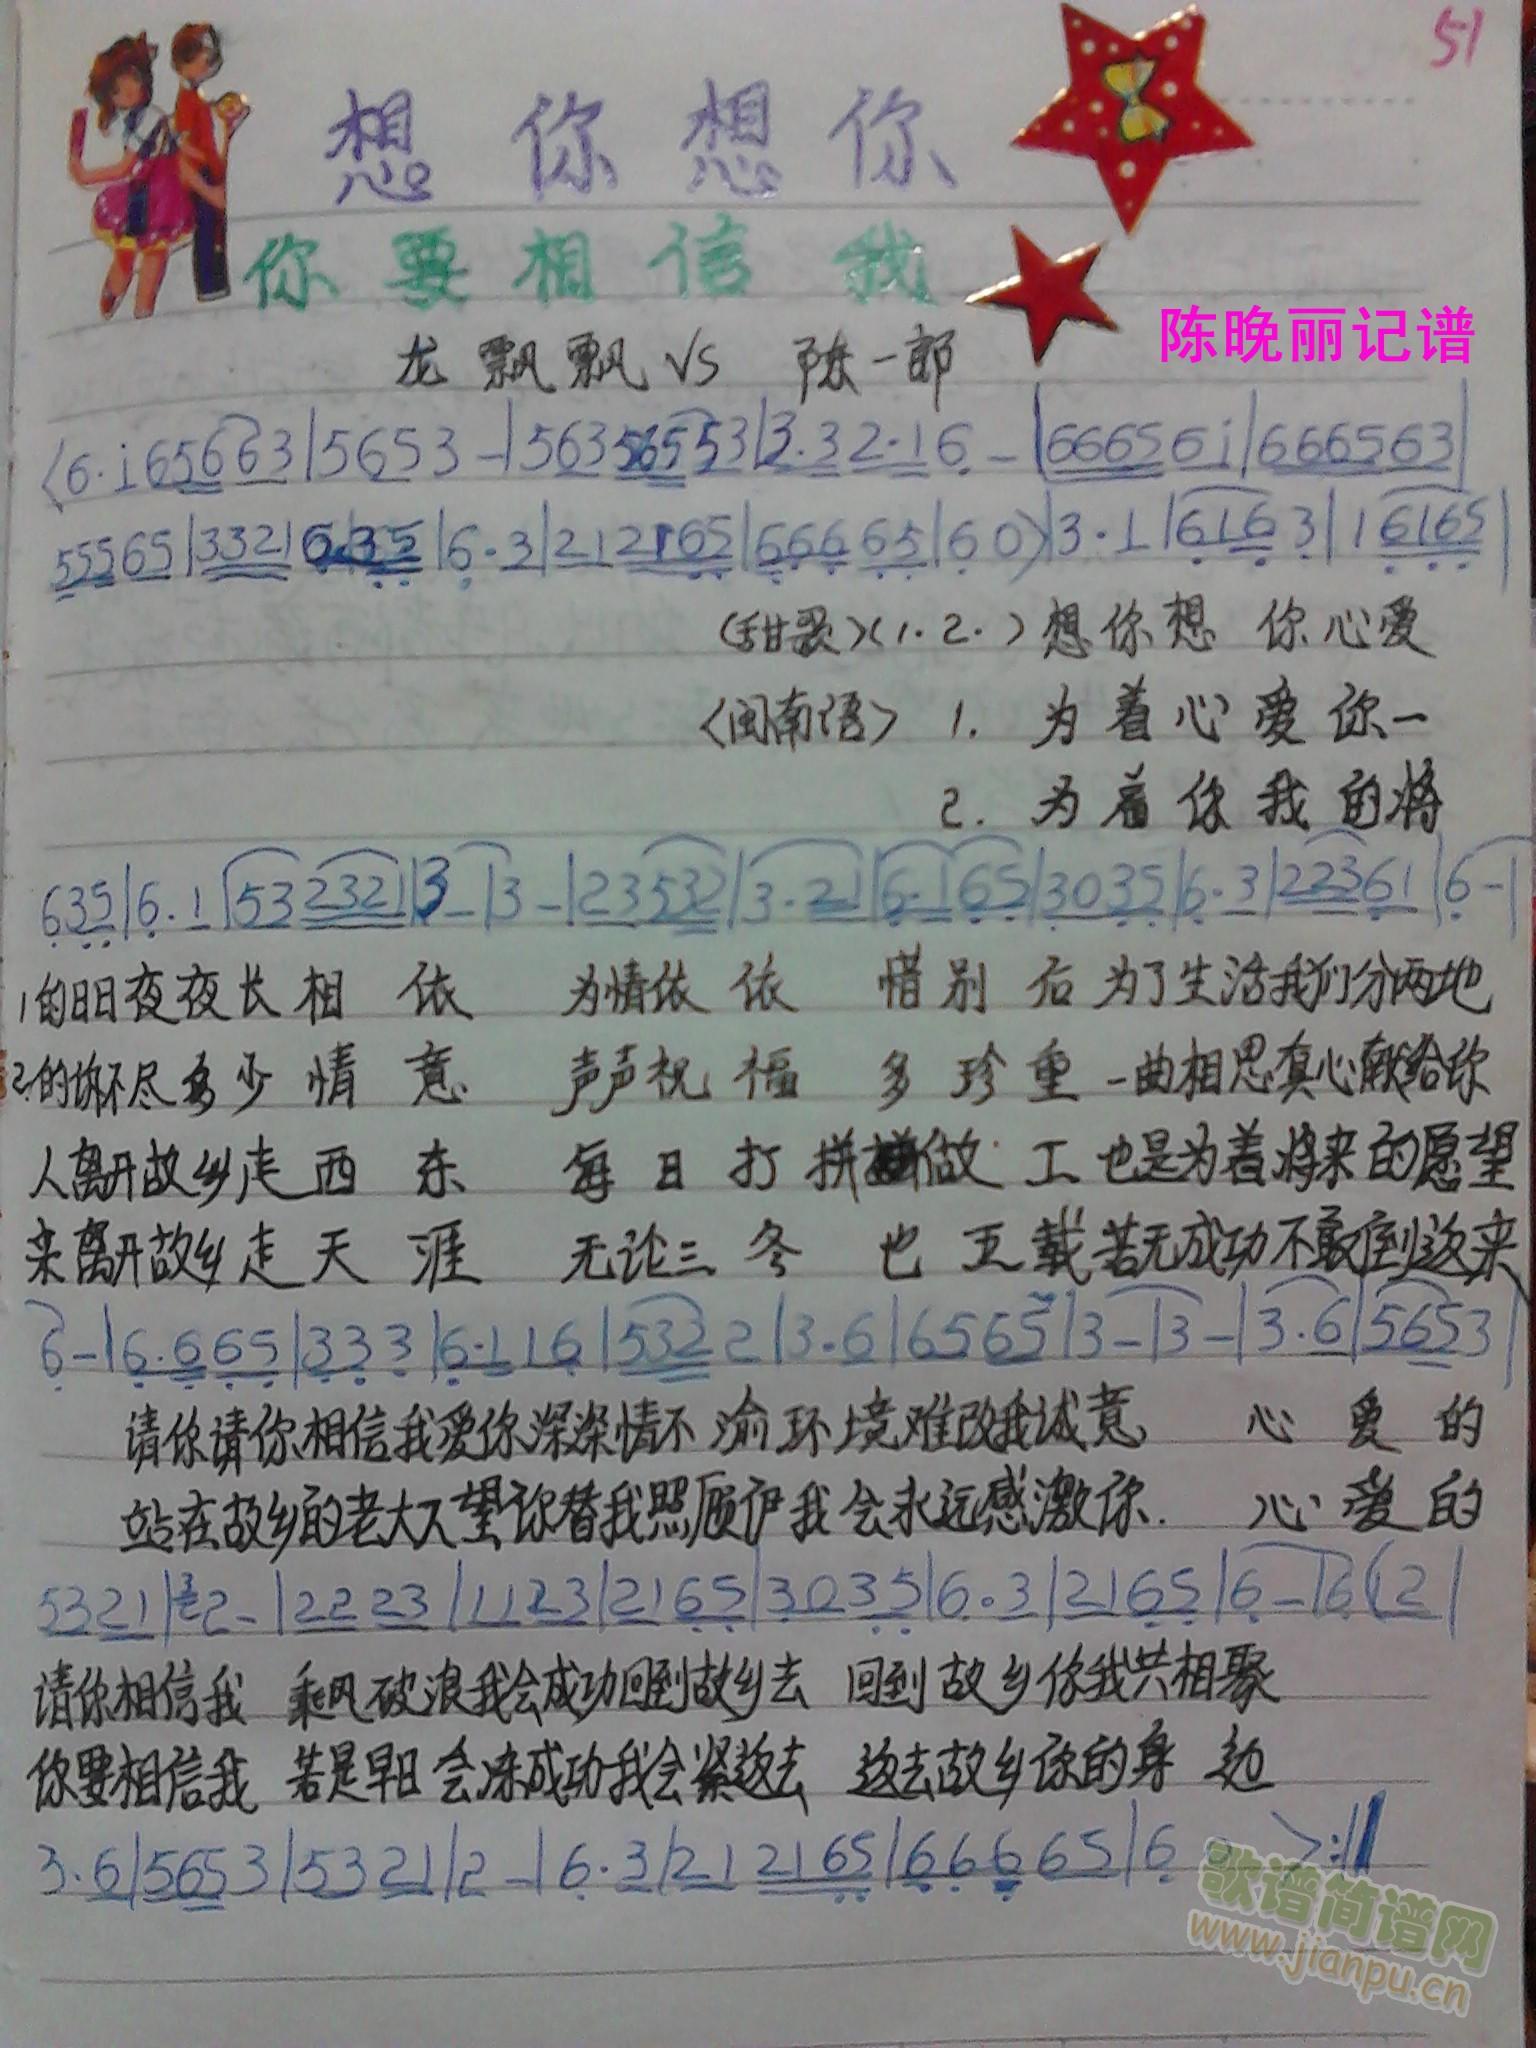 51
想你想你
你要相信我
龙飘飘 VS 陈一郎
陈晚丽记谱
(6·i65663|5653-|563565553|3·32·16-|666561|666563|
55565|3321 6·35|6·3|212165|66665|60)|3·1|6163|16165|
(甜歌)(1.2.)想你想 你心爱
<闽南语> 1. 为着心爱你一
2. 为着你我的将
635|6·1|532321|3-|3-|23532|3·21|6·165|3035|6·3|22361|6-|
1的日日夜夜长相 依 为情依依 惜别后为了生活我们分两地
2.的诉不尽多少情意 声声祝福 多珍重一曲相思真心献给你
人离开故乡走西东 每日打拼做工也是为着将来的愿望
来离开故乡走天涯 无论三冬 也五载若无成功不敢倒返来
6-|6·665|333|6·116|5322|3·6|6565|3-|3-|3·6|5653|
请你请你相信我爱你深深情不渝环境难改我诚意 心爱的
站在故乡的老大人望你替我照顾伊我会永远感激你. 心爱的
5321|2-|2223|1123|2165|3035|6·3|2165|6-|6(12|
请你相信我 乘风破浪我会成功回到故乡去 回到故乡你我共相聚
你要相信我 若是早日会冻成功我会紧返去 返去故乡你的身边
3·6|5653|5321|2-|6·3|212165|66665|6 - >:‖
歌谱简谱网
www.jianpu.cn